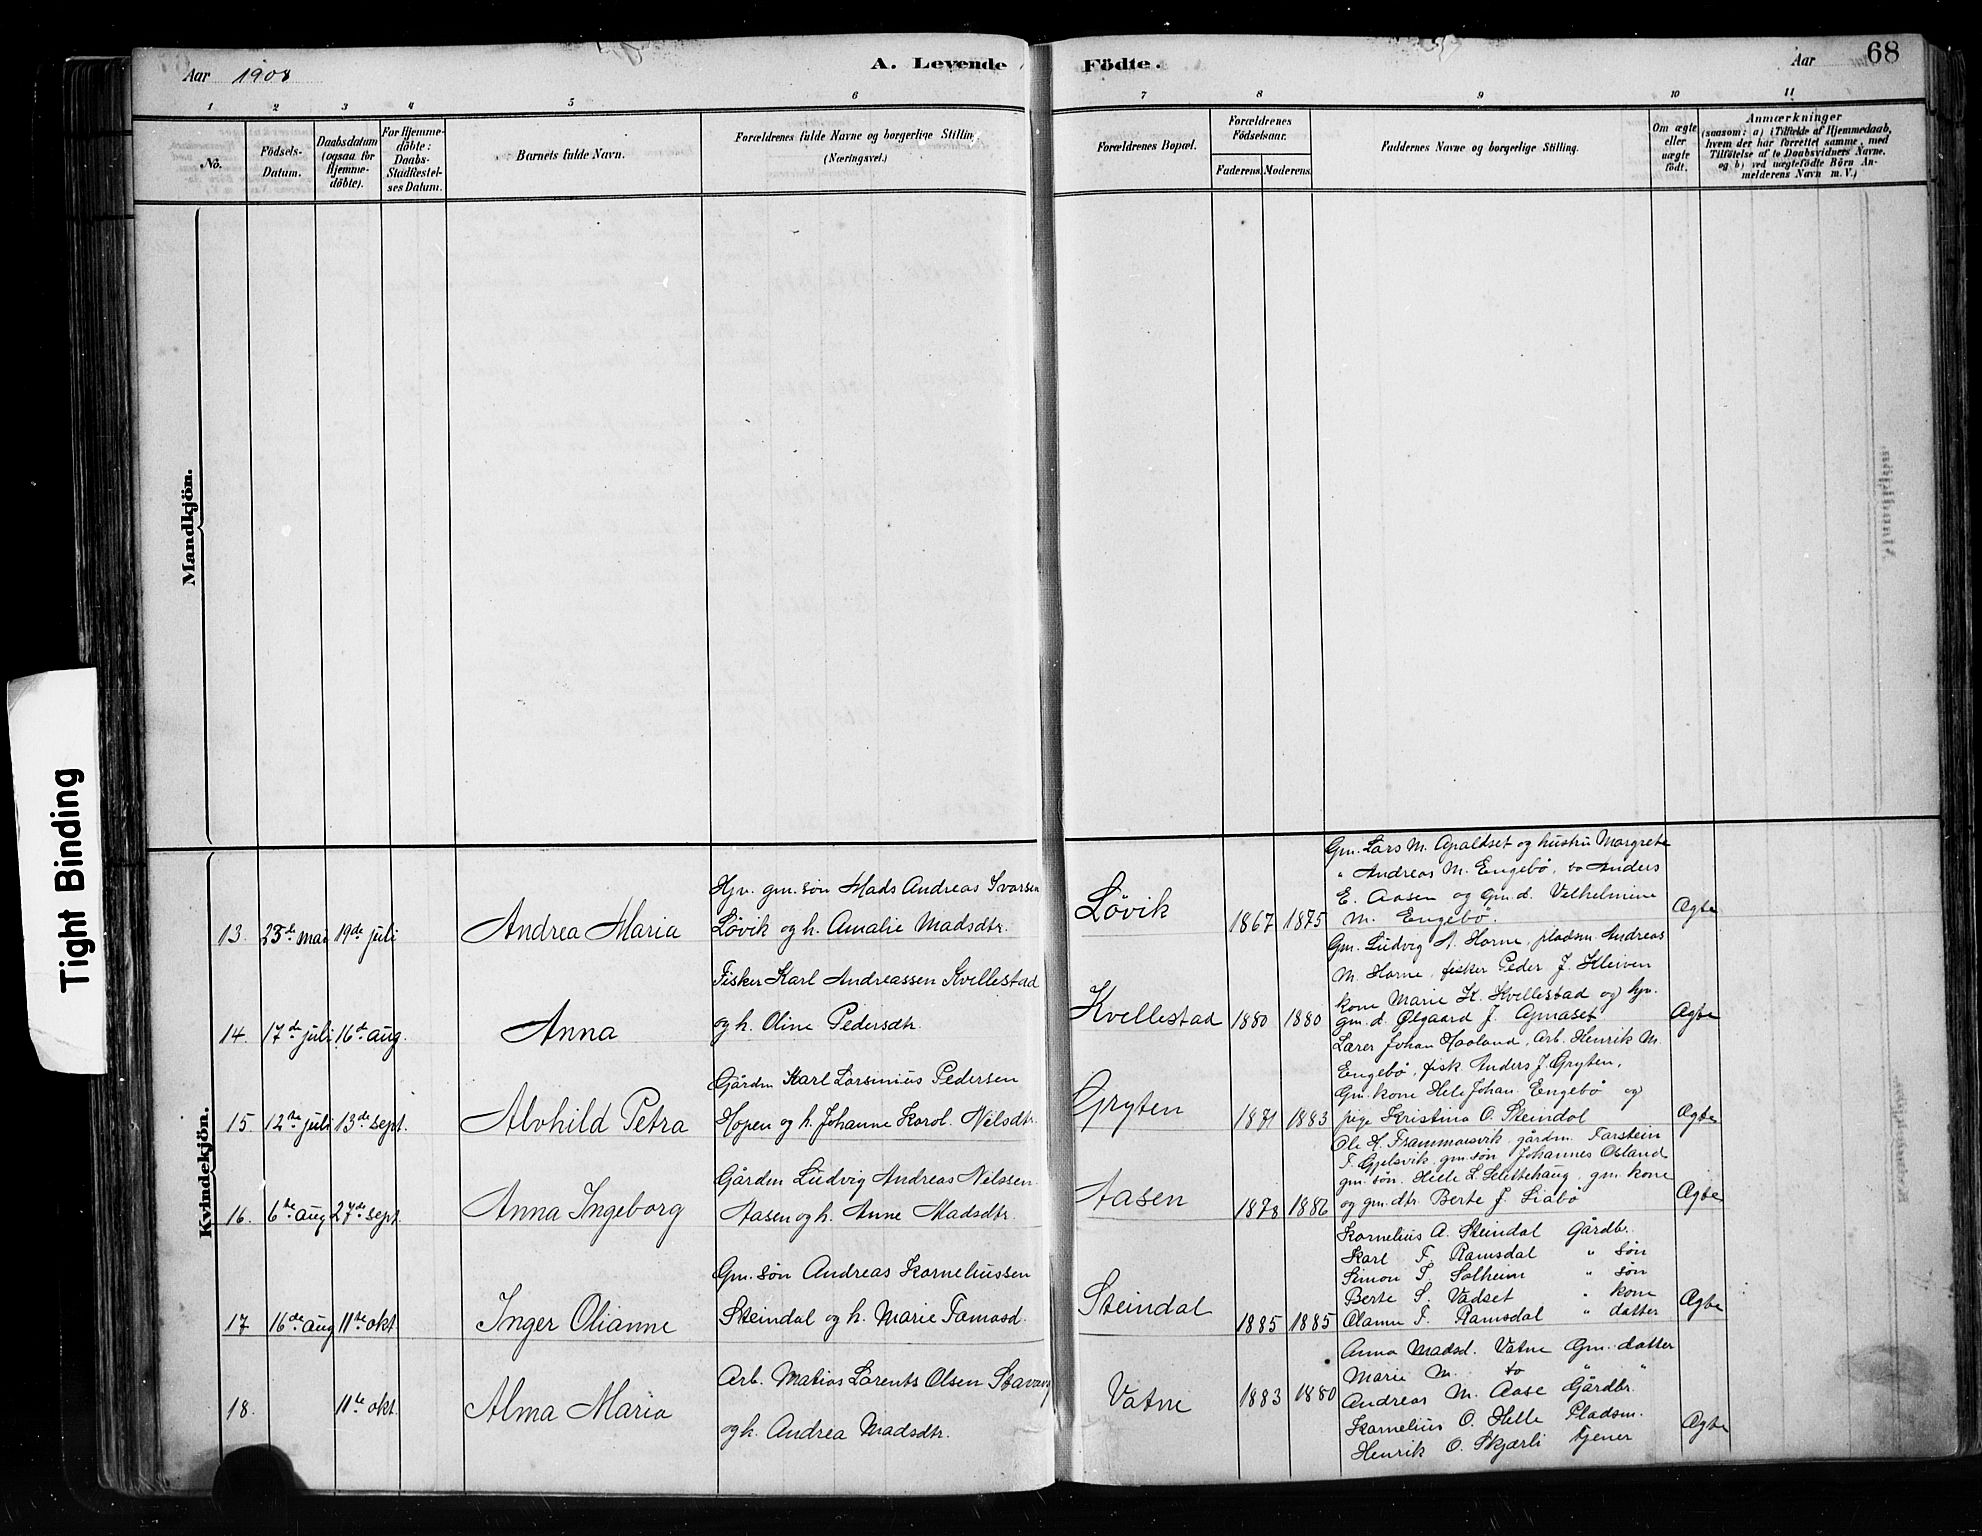 Aar 1908
A. Levende Födte.
Aar
68
1 2 3 4 5 6 7 8 9 10 11
No.
Födsels-
Datum.
Daabsdatum
(ogsaa for
Hjemme-
döbte).
For Hjemme-
döbte:
Daabs-
Stadfæstel-
ses Datum.
Barnets fulde Navn.
Forældrenes fulde Navne og borgerlige Stilling
(Næringsvei.)
Forældrenes Bopæl.
Forældrenes
Födselsaar.
Faderens. Moderens.
Faddernes Navne og borgerlige Stilling.
Om ægte
eller
uægte
födt.
Anmærkninger
(saasom: a) i Tilfælde af Hjemmedaab,
hvem der har forrettet samme, med
Tilföielse af to Daabsvidners Navne,
og b) ved uægtefödte Börn An-
melderens Navn m. V.)
Mandkjön.
Tight Binding
Kvindekjön.
13. 23de mai 19de juli
Andrea Maria
Hjv. gm.søn Mads Andreas Ivarsen
Løvik og h. Amalie Madsdtr.
Løvik
1867 1875
Gm. Lars M. Apaldset og hustru Margrete
" Andreas M. Engebø, Anders
E. Aasen og Gm.d. Vilhelmine
M. Engebø.
Ægte
14. 17de juli 16de aug.
Anna
Fisker Karl Andreassen Kvellestad
og h. Oline Pedersdtr.
Kvellestad
1880 1880
Gm. Ludvig A. Horne, pladsm Andreas
M. Horne, fisker Peder J. Kleiven
kone Marie K. Kvellestad og hjv.
gm.d. Ølgaard J. Gjmaset
Ægte
15. 12te juli 13de sept.
Alvhild Petra
Gårdm Karl Lorsinius Pedersen
Hopen og h. Johanne Karol. Nilsdtr.
Gryten
1871 1883
Lærer Johan Haaland, Arb. Henrik M.
Engebø, fisk Anders J Gryten,
Gm.kone Hele Johan. Engebø og
pige Kristina O. Steindal
Ægte
16. 6te aug 27de sept.
Anna Ingeborg
Gårdm Ludvig Andreas Nilssen
Aasen og h. Anne Madsdtr.
Aasen
1878 1886
Ole H. Frammarsvik gårdm. Tarstein
T. Gjelsvik, gm.søn Johannes Osland
gm. søn. Helle L. Slettehaug, gm. kone
og gm.dtr Berte J. Liabø
Ægte
17 16de aug 11te okt.
Inger Olianne
Gm. søn Andreas Korneliussen
Steindal og h. Marie Tomasd.
Steindal
1885 1885
Kornelius A. Steindal Gårdbr.
Karl T. Ramsdal " søn
Simon T. Solheim " søn
Berte S. Vadset " kone
Olanna T. Ramsdal " datter
Ægte
18. 11te okt.
Alma Maria
Arb. Matias Lorents Olsen Stavang
og h. Andrea Madsdtr.
Vatne
1883 1880
Anna Madsd. Vatne Gm. datter
Marie M. to "
Andreas M. Aase Gårdbr.
Kornelius O. Helle Pladsm.
Henrik O. Skjærli tjener
Ægte